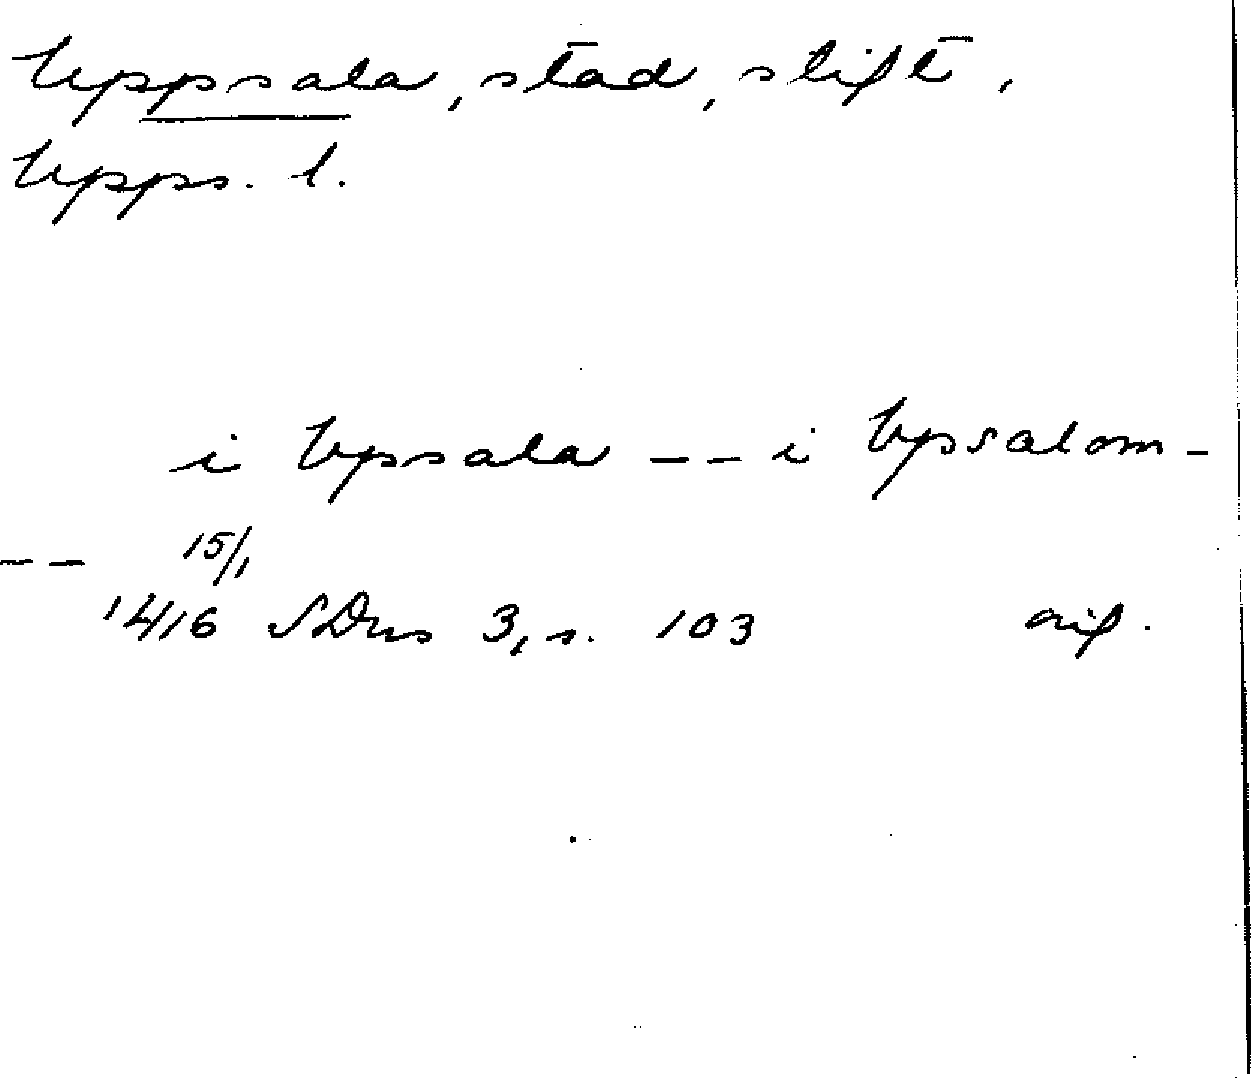 Uppsala, stad, stift,
Upps. l.
i Vpsala -- i Vpsalom -
-- 15/1
1416 SDns 3, s. 103 avs.